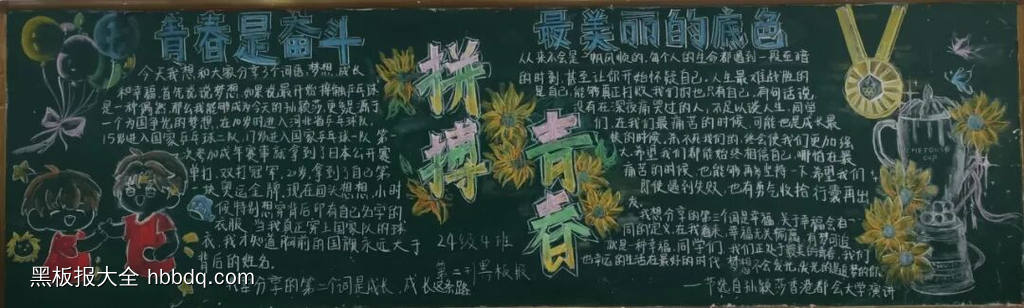 青春是奋斗
最美丽的底色
拼搏
青春
今天我想和大家分享3个词语,梦想、成长
和幸福。首先说说梦想,如果说最开始接触乒乓球
是一种偶然,那么我能够成为今天的孙颖莎更多是源于
一个为国争光的梦想,在10岁时进入河北省乒乓球队,
15岁进入国家乒乓球二队,17岁进入国家乒乓球一队,第
一次参加成年赛事就拿到了日本公开赛
单打、双打冠军,20岁,拿到了自己第
一块奥运金牌,现在回头想想,小时
候特别想穿背后印有自己名字的
衣服,当我真正穿上国家队的球
衣,我才知道胸前的国旗永远大于
背后的姓名。
我要分享的第二个词是成长,成长
这条路
24级4班
第二刊黑板报
从来不会是一帆风顺的,每个人的生命都遇到一段至暗
的时刻,甚至让你开始怀疑自己,人生最难战胜的
是自己,能够真正打败我们的也只有自己,有句话说
没有在深夜痛哭过的人,不足以谈人生,同学
们,在我们最痛苦的时候,可能也是成长最
快的时候,杀不死我们的,终会使我们更加强
大,希望我们都能始终相信自己,哪怕在最
痛苦的时候,也能够再坚持一下,希望我们
即使遇到失败,也有勇气收拾行囊再出
发。
我想分享的第三个词是幸福,关于幸福会有不
同的定义,在我看来,幸福无关输赢,有梦可追
就是一种幸福,同学们,我们正处于最美的青春,我们
也幸运的生活在最好的时代
梦想不会发光,发光的是追梦的你
—节选自孙颖莎香港都会大学演讲
CUP
黑板报大全 hbbdq.com